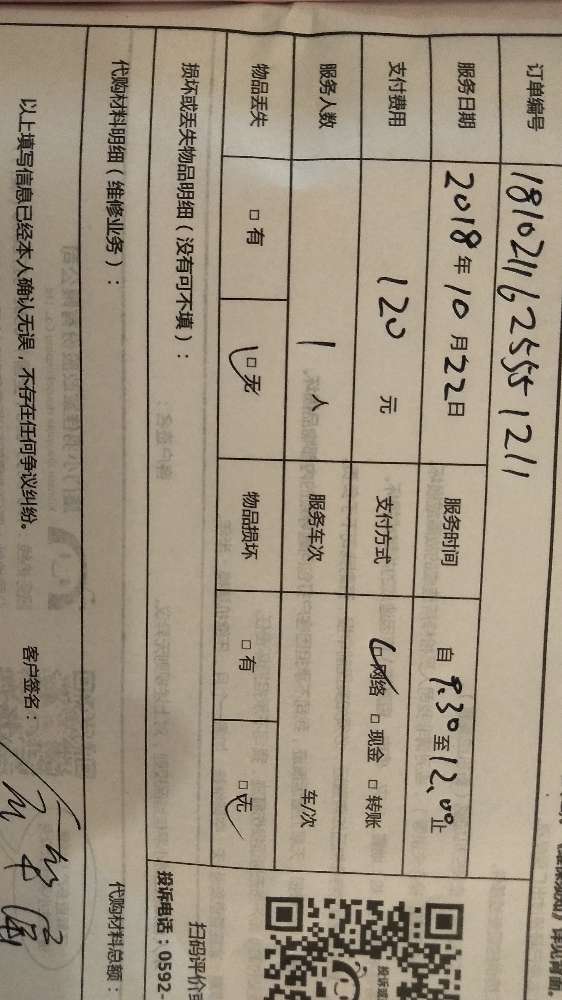 详见背面。
订单编号 1810211625551211
服务日期 2018年10月22日 服务时间 自9:30至12:00止
支付费用 120 元 支付方式 □网络 □现金 □转账
服务人数 1 人 服务车次 车/次
物品丢失 □有 □无 物品损坏 □有 □无
损坏或丢失物品明细（没有可不填）：
扫码评价
投诉电话：0592-
代购材料明细（维修业务）：
代购材料总额：
以上填写信息已经本人确认无误，不存在任何争议纠纷。 客户签名：